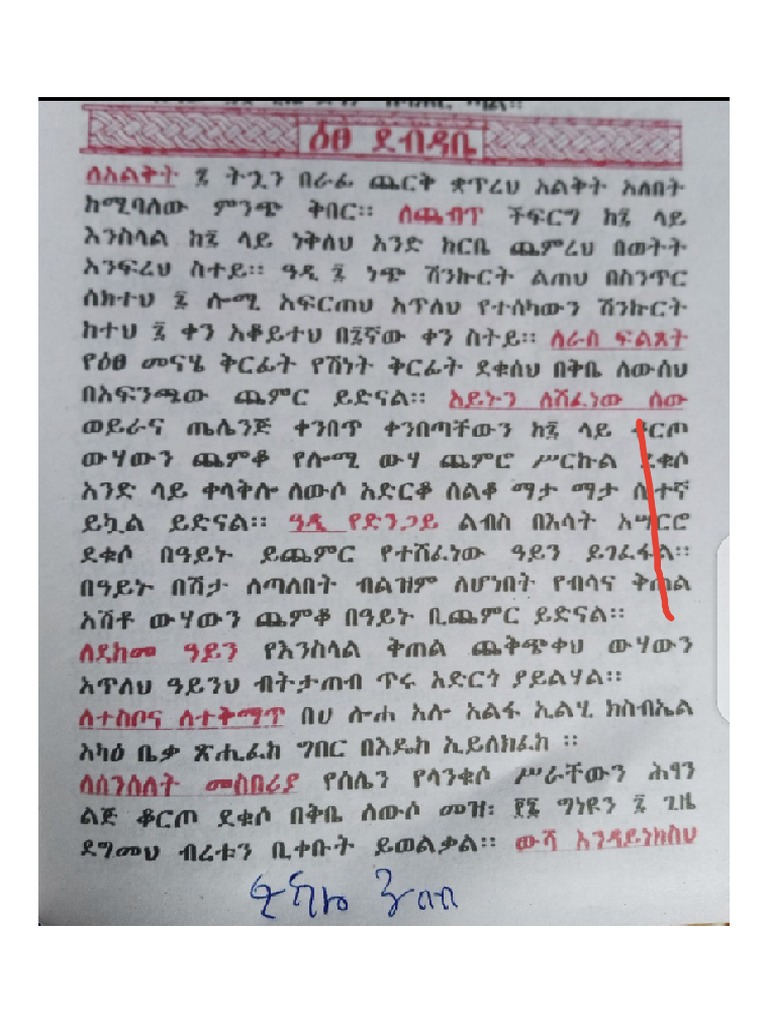 ዕፀ ደብዳቤ
ለአልቅት ፯ ትኋን በራፊ ጨርቅ ቋጥረህ አልቅት አለበት
ከሚባለው ምንጭ ቅበር። ለጨብጥ ችፍርግ ከ፯ ላይ
እንስላል ከ፯ ላይ ነቅለህ አንድ ክርቤ ጨምረህ በወተት
አንፍረህ ስተይ። ዓዲ ፯ ነጭ ሽንኩርት ልጠህ በስንጥር
ሰክተህ ፯ ሎሚ አፍርጠህ አጥለህ የተሰካውን ሽንኩርት
ከተህ ፯ ቀን አቆይተህ በ፯ኛው ቀን ስትይ። ለራስ ፍልጸት
የዕፀ መናሄ ቅርፊት የሽነት ቅርፊት ደቁሰህ በቅቤ ለውሰህ
በአፍንጫው ጨምር ይድናል። አይኑን ለሸፈነው ሰው
ወይራና ጤሌንጅ ቀንበጥ ቀንበጣቸውን ከ፯ ላይ ቆርጦ
ውሃውን ጨምቆ የሎሚ ውሃ ጨምሮ ሥርኩል ደቁሶ
አንድ ላይ ቀላቅሎ ለውሶ አድርቆ ሰልቆ ማታ ማታ ሲተኛ
ይኳል ይድናል። ዓዲ የድንጋይ ልብስ በእሳት አሣርሮ
ደቁሶ በዓይኑ ይጨምር የተሸፈነው ዓይን ይገፈፋል።
በዓይኑ በሽታ ለጣለበት ብልዝም ለሆነበት የብሳና ቅጠል
አሽቶ ውሃውን ጨምቆ በዓይኑ ቢጨምር ይድናል።
ለደከመ ዓይን የእንስላል ቅጠል ጨቅጭቀህ ውሃውን
አጥለህ ዓይንህ ብትታጠብ ጥሩ አድርጎ ያይልሃል።
ለተስቦና ለተቅማጥ በሀ ሎሐ አሎ አልፋ ኢልሂ ክስብኤል
አካዕ ቤቃ ጽሒፈከ ግበር በእዴከ ኢይለክፈከ ።
ለሰንሰለት መስበሪያ የሰሌን የላንቁሶ ሥራቸውን ሕፃን
ልጅ ቆርጦ ደቁሶ በቅቤ ለውሶ መዝ፡ ፻፯ ግነዩን ፯ ጊዜ
ደግመህ ብረቱን ቢቀቡት ይወልቃል። ውሻ እንዳይነክስህ